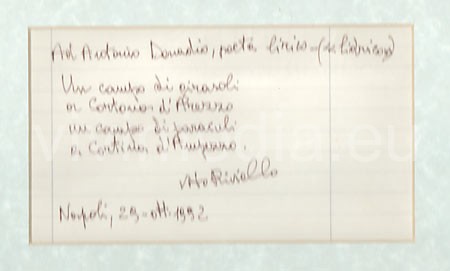 Ad Antonio Donadio, poeta lirico = (& lidrico)
Un campo di girasoli
a Cortona d'Arezzo
un campo di parasoli
a Cortina d'Ampezzo.
Vito Riviello
Napoli, 29-ott. 1992